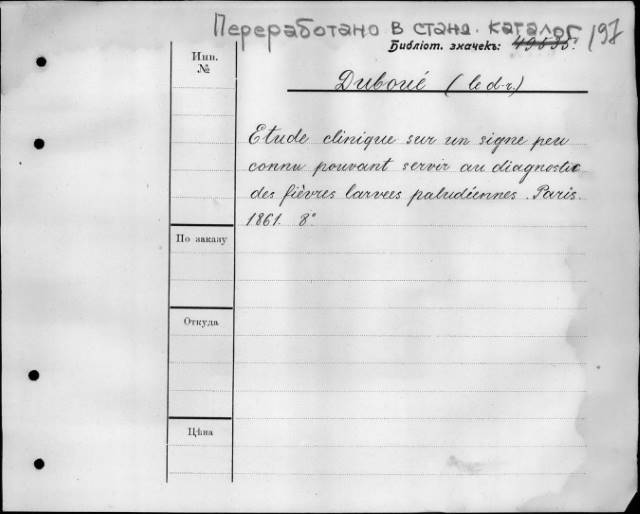 Переработано в станд. каталог 197
Библіот. значекъ: 49535.
Инв.
№
Duboué (le d-r.)
Etude clinique sur un signe peu
connu pouvant servir au diagnostic
des fièvres larvées paludéennes. Paris.
1861. 8°
По заказу
Откуда
Цѣна